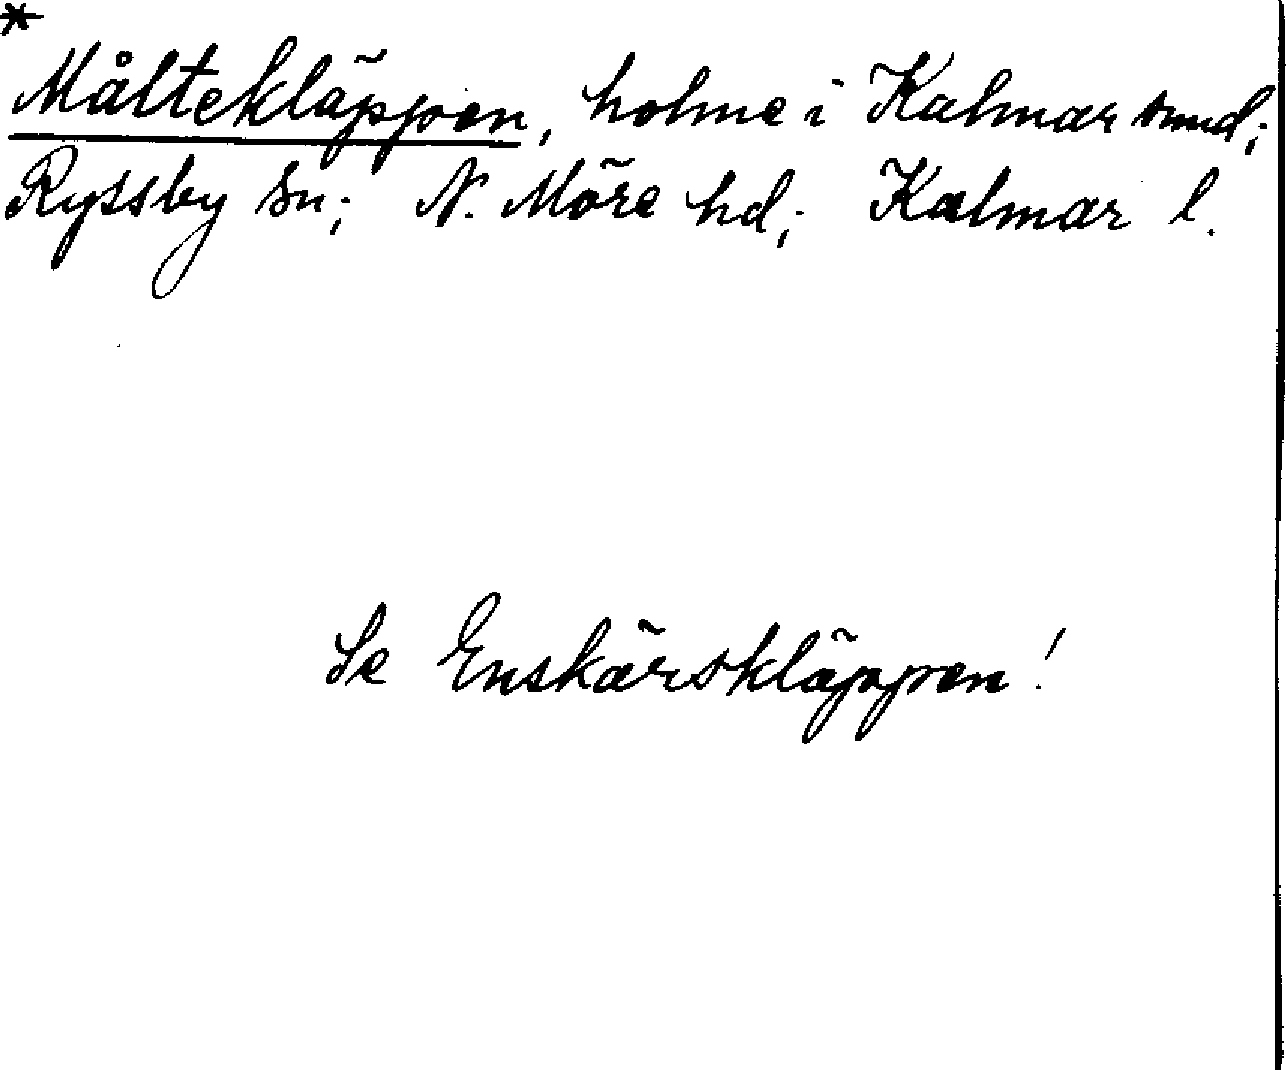 *
Måltekläppen, holme i Kalmarsund;
Ryssby sn; N. Möre hd; Kalmar l.
Se Enskärskläppen!